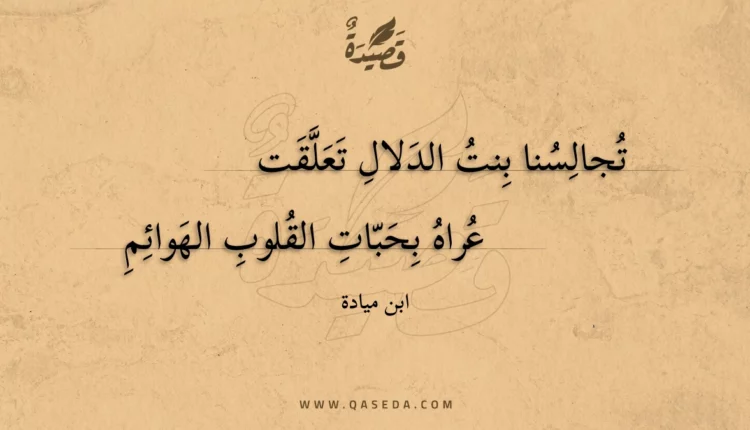 قَصِيدَةٌ
تُجالِسُنا بِنتُ الدَلالِ تَعَلَّقَت
عُراهُ بِحَبّاتِ القُلوبِ الهَوائِمِ
ابن ميادة
WWW.QASEDA.COM